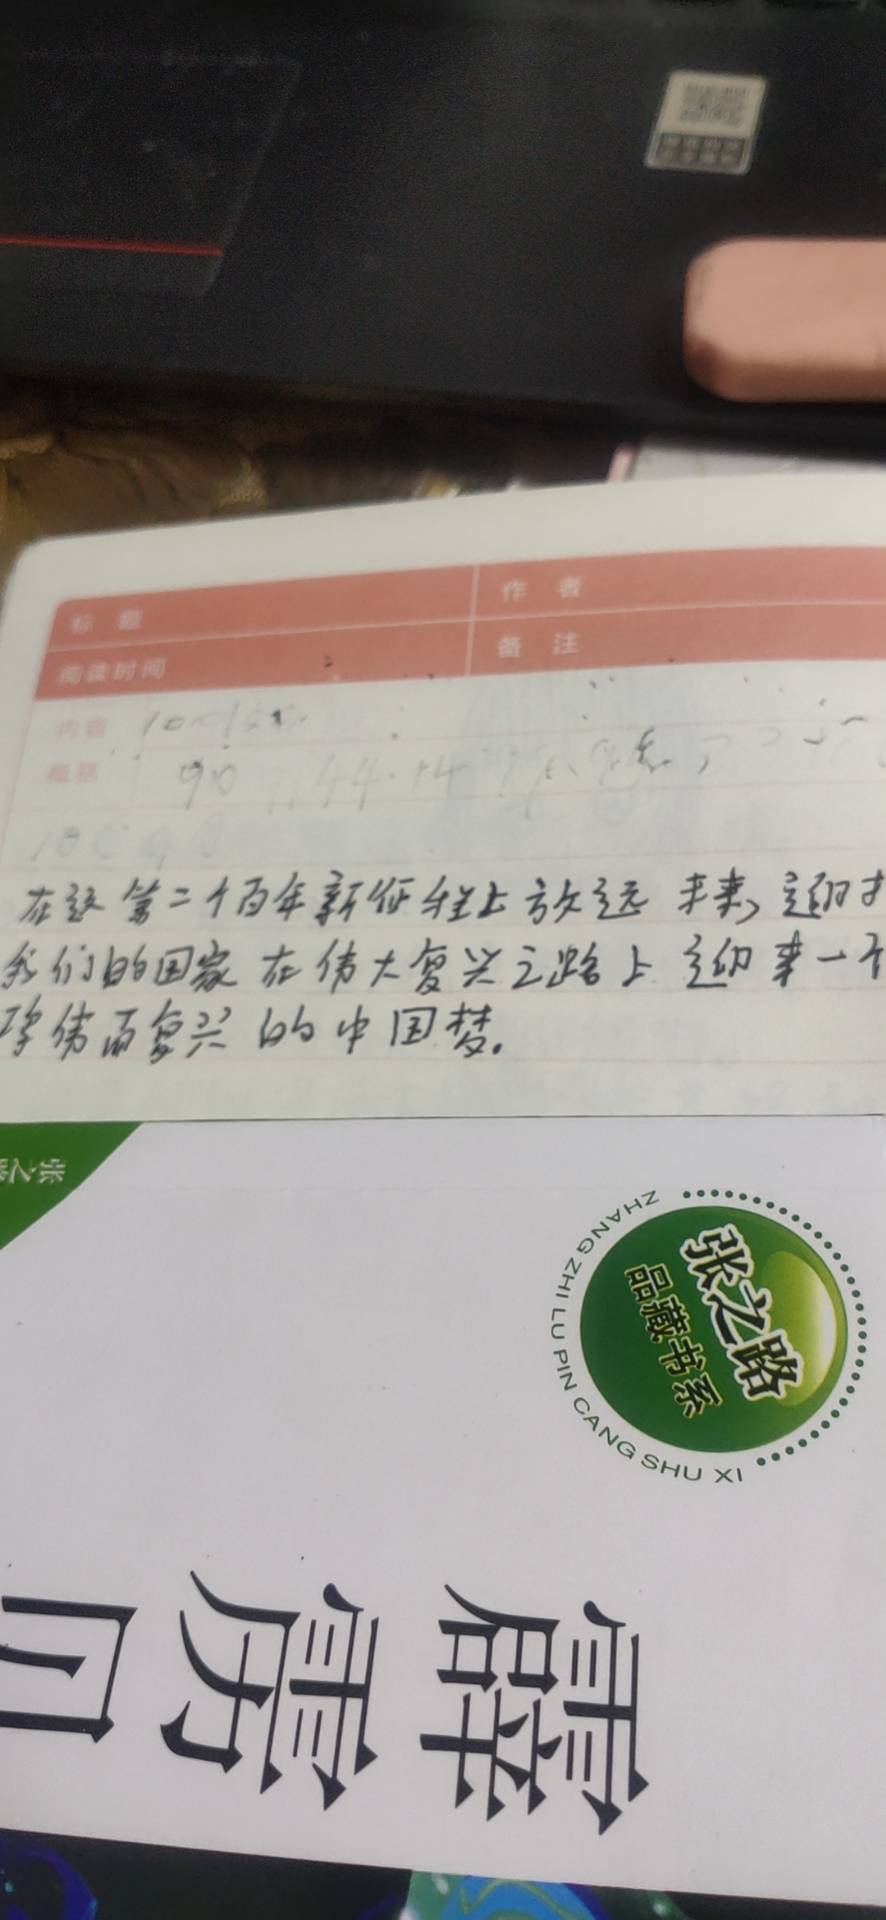 标题
作者
阅读时间
备注
内容
概括
90
在这第二个百年新征程上放远未来，迎
我们的国家在伟大复兴之路上迎来一个
伟而复兴的中国梦。
张之路
品藏书系
ZHANG ZHI LU PIN CANG SHU XI
霹雳贝